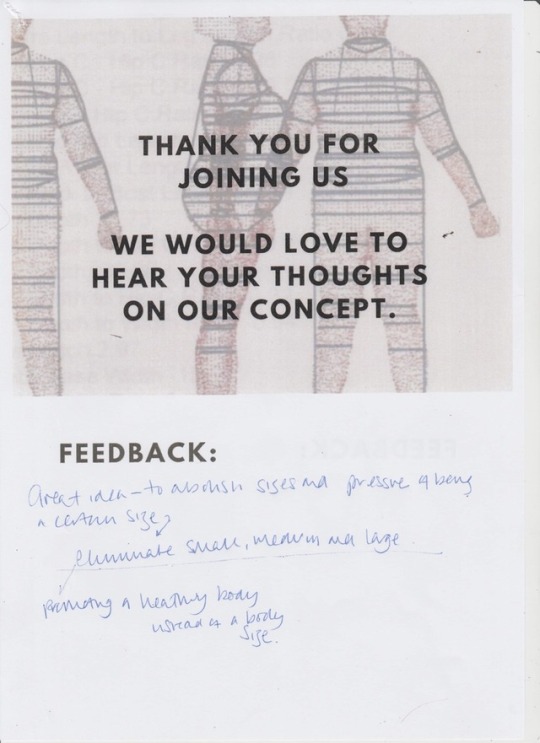 THANK YOU FOR
JOINING US
WE WOULD LOVE TO
HEAR YOUR THOUGHTS
ON OUR CONCEPT.
FEEDBACK:
Great idea - to abolish sizes and pressure of being
a certain size
eliminate small, medium and large
promoting a healthy body
instead of a body
size.